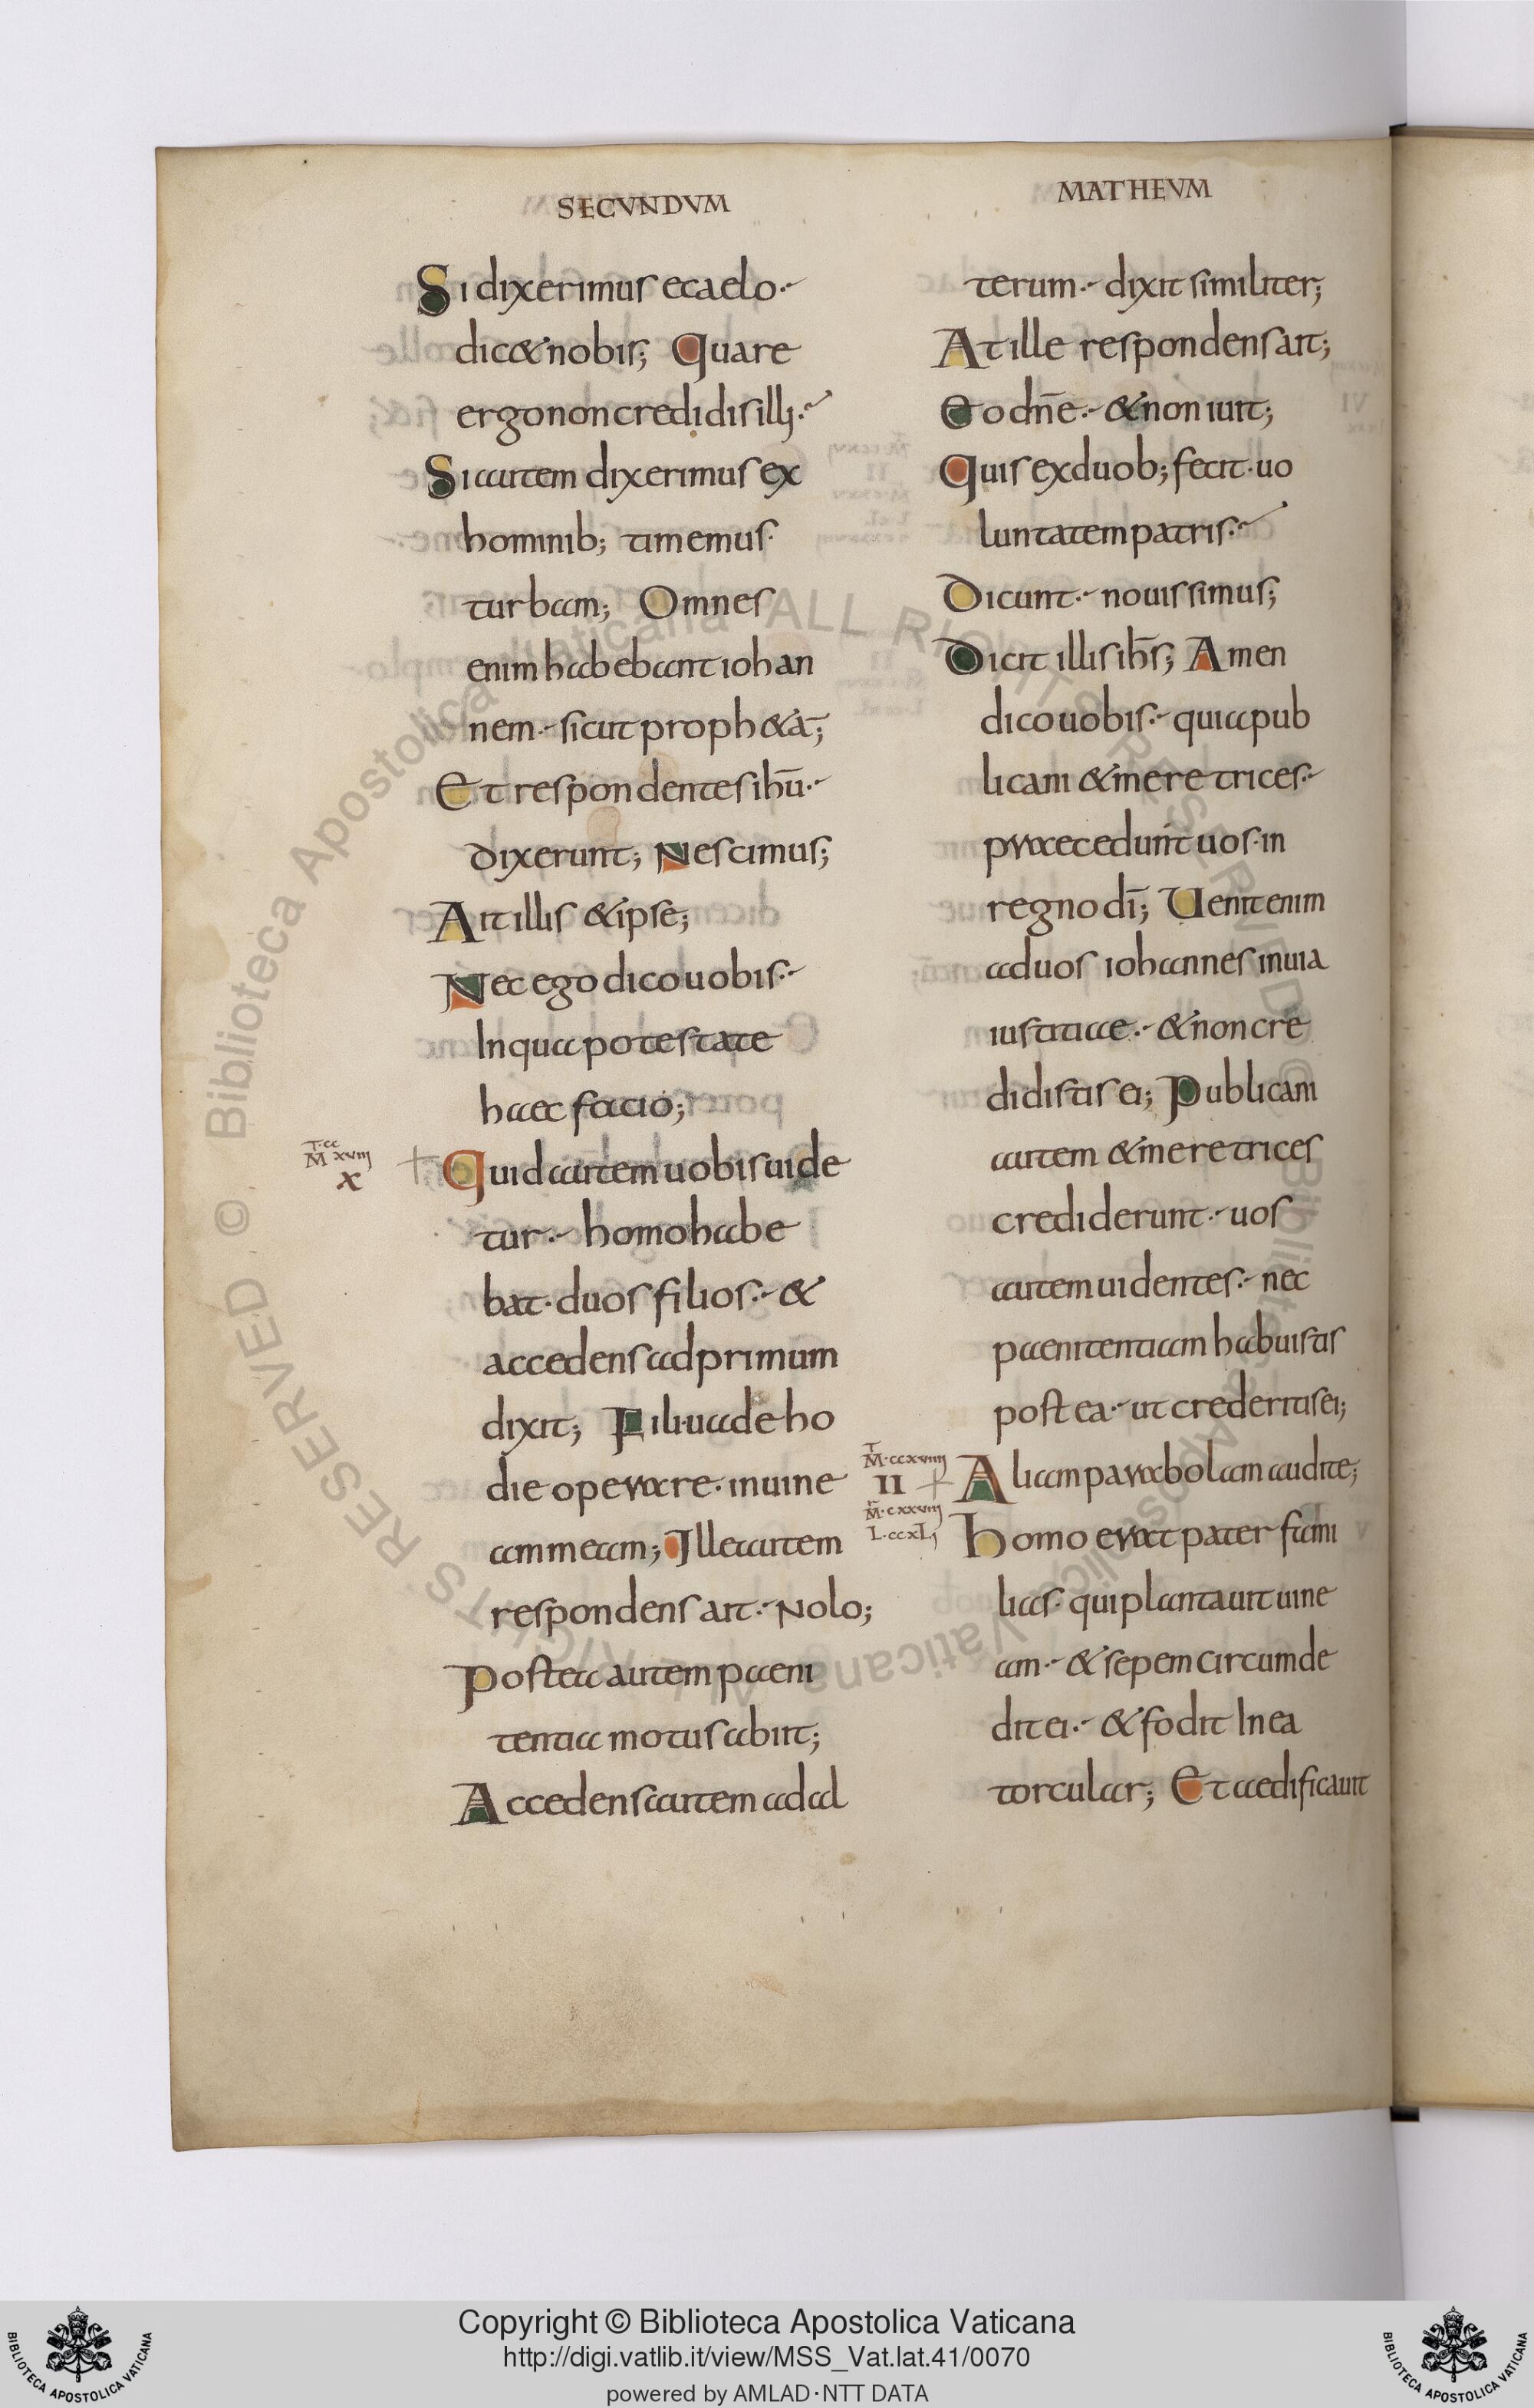 SECVNDVM
Si dixerimus e caelo·
dic& nobis; Quare
ergo non credidisilli·
Si autem dixerimus ex
hominib; timemus·
turbam; Omnes
enim habebant iohan
nem· sicut proph&ā;
Et respondentes ihū·
dixerunt; Nescimus;
Ait illis & ipse;
Nec ego dico uobis·
In qua potestate
haec facio;
T·cc
M xviiij
x
Quid autem uobis uide
tur· homo habe
bat· duos filios· &
accedens ad primum
dixit; Fili· uade ho
die operare· in uine
am meam; Ille autem
respondens ait· Nolo;
Postea autem paeni
tentia motus abiit;
Accedens autem ad al
MATHEVM
terum· dixit similiter;
At ille respondens ait;
Eo dn̄e· & non iuit;
Quis ex duob; fecit· uo
luntatem patris·
Dicunt· nouissimus;
Dicit illis ih̄s; Amen
dico uobis· quia pub
licani & meretrices·
praecedunt uos· in
regno dī; Uenit enim
ad uos iohannes in uia
iustitiae· & non cre
didistis ei; Publicani
autem & meretrices
crediderunt· uos
autem uidentes· nec
paenitentiam habuistis
post ea· ut crederitis ei;
M·ccxviiij
II
M·cxxviiij
L·ccxLi
Aliam parabolam audite;
Homo erat pater fami
lias· qui plantauit uine
am· & sepem circumde
dit ei· & fodit In ea
torcular; Et aedificauit
Copyright © Biblioteca Apostolica Vaticana
http://digi.vatlib.it/view/MSS_Vat.lat.41/0070
powered by AMLAD·NTT DATA
BIBLIOTECA APOSTOLICA VATICANA
BIBLIOTECA APOSTOLICA VATICANA